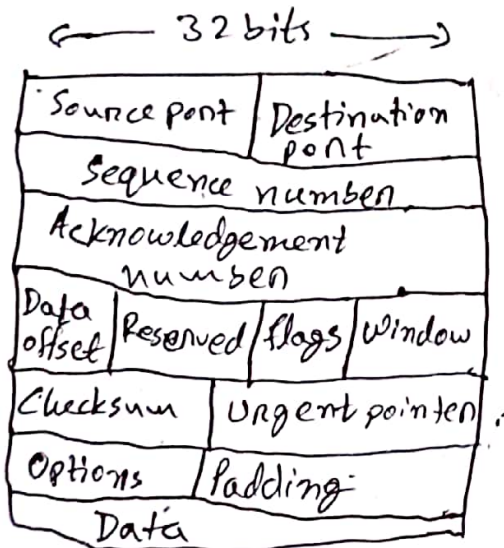 32 bits
Source port Destination port
Sequence number
Acknowledgement
number
Data offset Reserved flags Window
Checksum Urgent pointer
Options Padding
Data